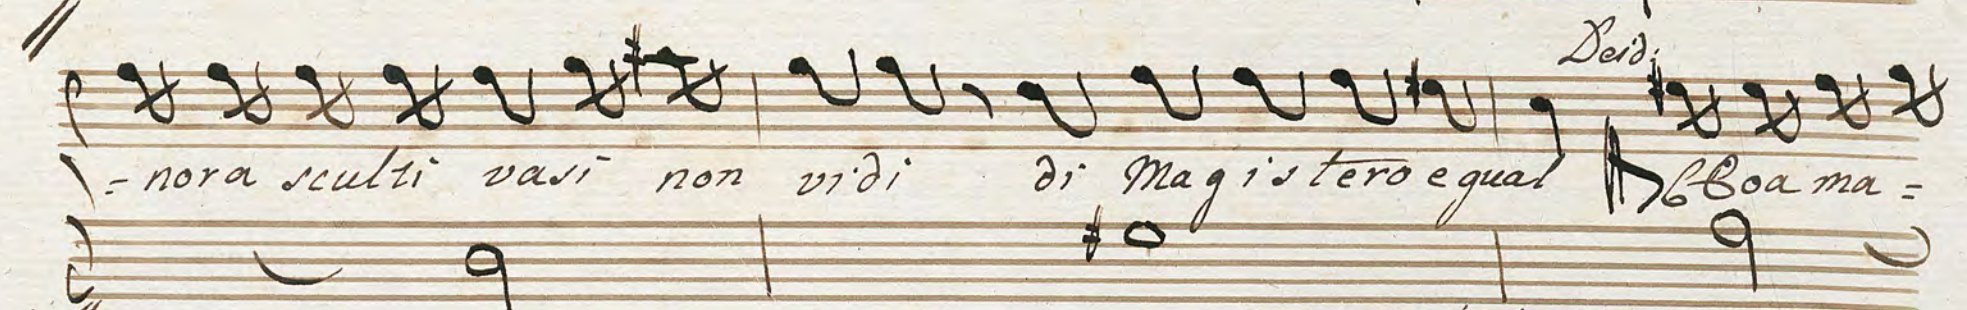 Deid:
=nora sculti vasi non vidi di Magistero equal ma=